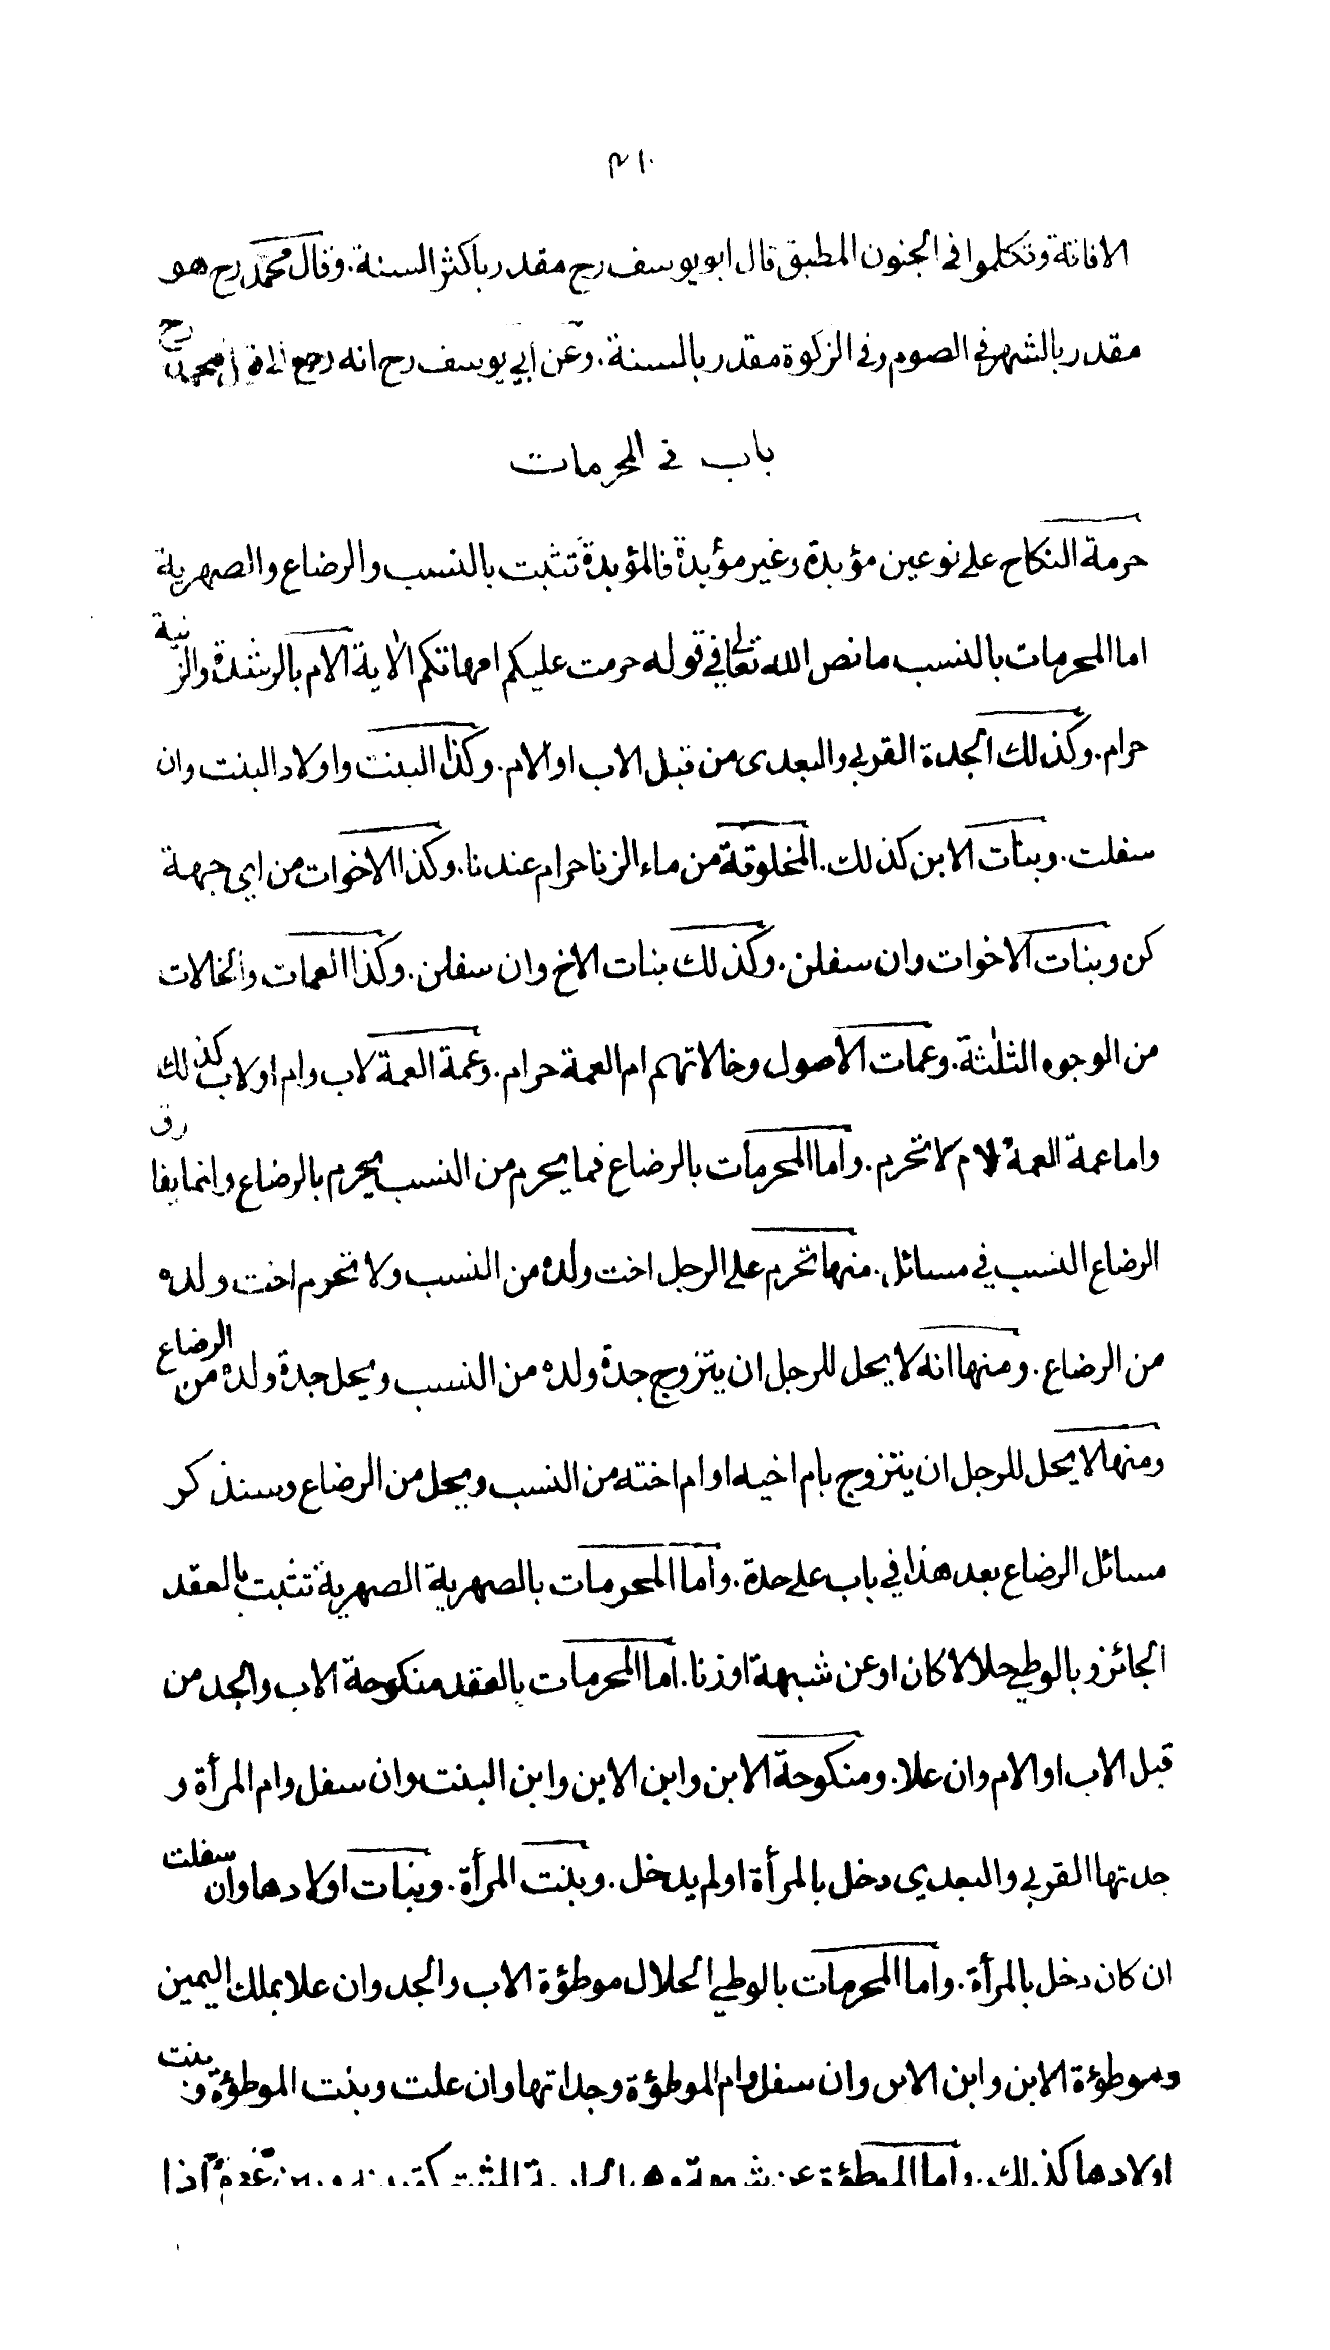 ٢١٠
الافاقة وتكلموا في الجنون المطبق قال ابو يوسف رح مقدر باكثر السنة. وقال محمد رح هو
مقدر بالشهر في الصوم وفي الزكوة مقدر بالسنة. وعن ابي يوسف رح انه رجع الى قول محمد رح
باب في المحرمات
حرمة النكاح على نوعين مؤبدة وغير مؤبدة فالمؤبدة تثبت بالنسب والرضاع والصهرية
اما المحرمات بالنسب ما نص الله تعالى في قوله حرمت عليكم امهاتكم الاٰية الام بالرشدة والزنية
حرام. وكذلك الجدة القربي والبعدى من قبل الاب او الام. وكذا البنت واولاد البنت وان
سفلت. وبنات الابن كذلك. المخلوقة من ماء الزنا حرام عندنا. وكذا الاخوات من اي جهة
كن وبنات الاخوات وان سفلن. وكذلك بنات الاخ وان سفلن. وكذا العمات والخالات
من الوجوه الثلٰثة. وعمات الاصول وخالاتهم ام العمة حرام. وعمة العمة لاب وام او لاب كذلك
واما عمة العمة لام لا تحرم. واما المحرمات بالرضاع فما يحرم من النسب يحرم بالرضاع وانما يفارق
الرضاع النسب في مسائل. منها تحرم على الرجل اخت ولده من النسب ولا تحرم اخت ولده
من الرضاع. ومنها انه لا يحل للرجل ان يتزوج جدة ولده من النسب ويحل جدة ولده من الرضاع
ومنها لا يحل للرجل ان يتزوج بام اخيه او ام اخته من النسب ويحل من الرضاع وسنذكر
مسائل الرضاع بعد هذا في باب على حدة. واما المحرمات بالصهرية الصهرية تثبت بالعقد
الجائز وبالوطي حلالا كان او عن شبهة او زنا. اما المحرمات بالعقد منكوحة الاب والجد من
قبل الاب او الام وان علا. ومنكوحة الابن وابن الابن وابن البنت وان سفل وام المرأة و
جدتها القربي والبعدي دخل بالمرأة او لم يدخل. وبنت المرأة. وبنات اولادها وان سفلت
ان كان دخل بالمرأة. واما المحرمات بالوطي الحلال موطؤة الاب والجد وان علا بملك اليمين
وموطؤة الابن وابن الابن وان سفل وام الموطؤة وجداتها وان علت وبنت الموطؤة وبنت
اولادها كذلك. واما الموطؤة عن شبهة اذا